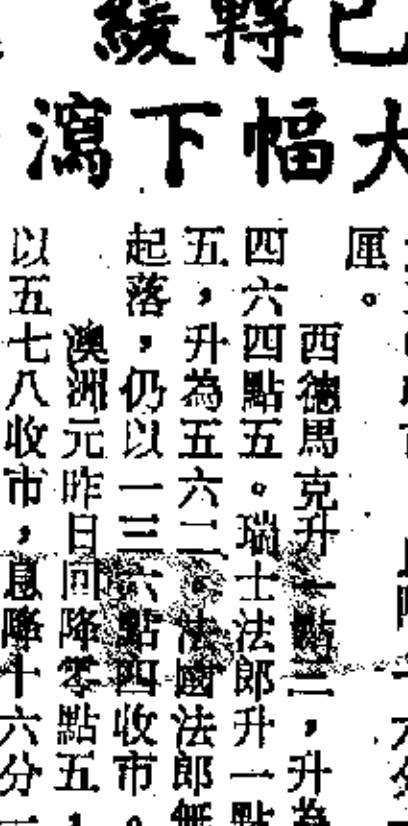 已轉緩
大幅下瀉
厘。
西德馬克升一點三，升為
四六四點五。瑞士法郎升一點
五，升為五六二。法國法郎無
起落，仍以一三六點四收市。
澳洲元昨日回降零點五，
以五七八收市，息降十六分一